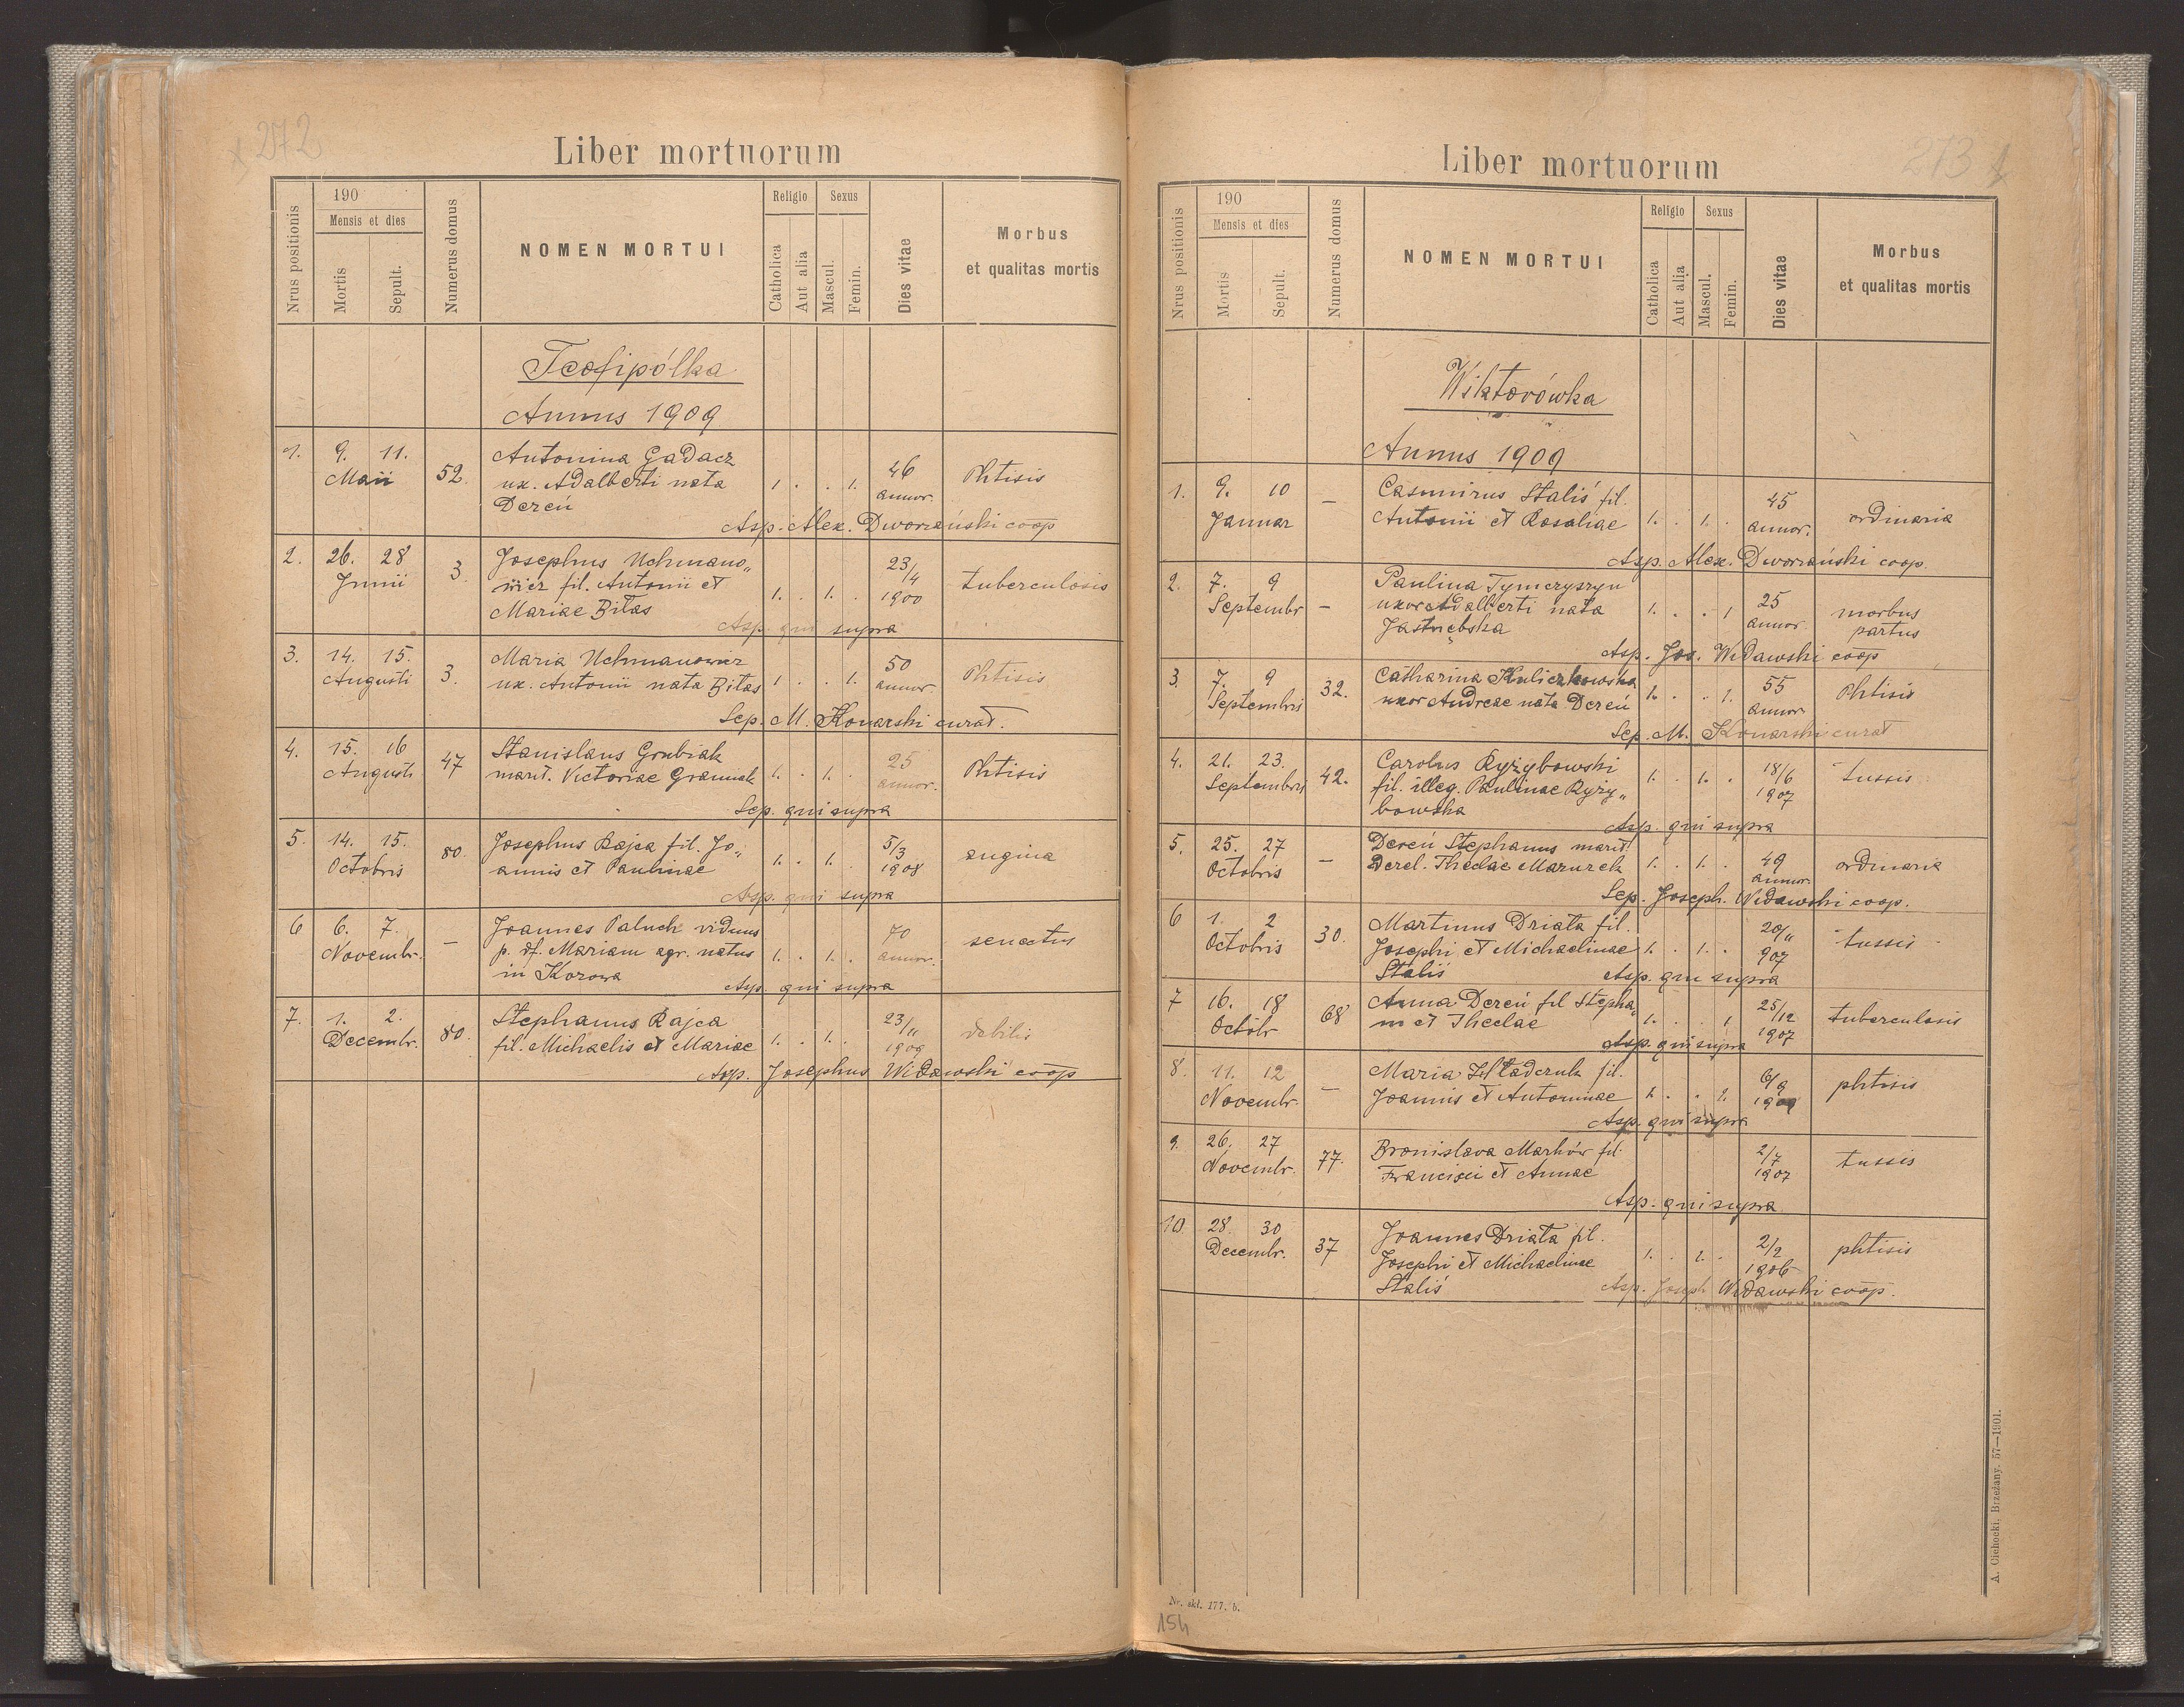 x 272
Liber mortuorum
Nrus positionis
190
Mensis et dies
Mortis
Sepult.
Numerus domus
NOMEN MORTUI
Religio
Catholica
Aut alia
Sexus
Mascul.
Femin.
Dies vitae
Morbus
et qualitas mortis
Teofipólka
Annus 1909
1. 9. 11. Antonina Gadacz
Maii 52. ux. Adalberti nata 1 . . 1. 46 annor. Phtisis
Dereń
Asp. Alex. Dworzański coop
2. 26. 28 Josephus Uchmano„
Junii 3. wicz fil. Antonii et 1. . 1. . 23/4 1900 tuberculosis
Mariae Bitas
Asp. qui supra
3. 14. 15. Maria Uchmanowicz
Augusti 3. ux. Antonii nata Bitas 1 . . 1. 50 annor. Phtisis
Sep. M. Konarski curat.
4. 15. 16 Stanislaus Grubiak
Augusti 47 marit. Victoriae 1. . 1. . 25 annor. Phtisis
Sep. qui supra
5. 14. 15. Josephus Rajca fil. Jo„
Octobris 80. annis et Paulinae 1. . 1. 5/3 1908 angina
Asp. qui supra
6 6. 7. Joannes Paluch viduus
Novembr. – p. df. Mariam agr. natus 1. . 1. . 70 annor. senectus
in Korowa
Asp. qui supra
7. 1. 2. Stephanus Rajca
Decembr. 80. fil. Michaelis et Mariae 1. . 1. 23/11 1909 debilis
Asp. Josephus Widawski coop
273 x
Liber mortuorum
Nrus positionis
190
Mensis et dies
Mortis
Sepult.
Numerus domus
NOMEN MORTUI
Religio
Catholica
Aut alia
Sexus
Mascul.
Femin.
Dies vitae
Morbus
et qualitas mortis
Wiktorówka
Annus 1909
1. 9. 10 – Casimirus Staliś fil.
Januar Antonii et Rosaliae 1. . 1. . 45 annor. ordinaria
Asp. Alex. Dworzański coop.
2. 7. 9 Paulina Tymczyszyn
Septembr – uxor Adalberti nata 1. . . 1 25 annor. morbus partus
Jastrzębska
Asp. Jos. Widawski coop
3. 7. 9 Catharina Kuliczkowska
Septembris 32. uxor Andreae nata Dereń 1. . . 1. 55 annor. Phtisis
Sep. M. Konarski curat
4. 21. 23. Carolus Ryżybowski
Septembris 42. fil. illeg. Paulinae Ryży„ 1. . 1. . 18/6 1907 tussis
bowska
Asp. qui supra
5. 25. 27 Dereń Stephanus marit.
Octobris – derel. Theclae Mazurek 1. . 1. . 49 annor. ordinaria
Sep. Joseph. Widawski coop.
6 1. 2 Martinus Driata fil.
Octobris 30. Josephi et Michaelinae 1. . 1. . 20/11 907 tussis
Staliś
Asp. qui supra
7 16. 18 Anna Dereń fil Stepha„
Octobr 68 ni et Theclae 1. . . 1 25/12 1907 tuberculosis
Asp. qui supra
8. 11. 12 Maria fil.
Novembr. – Joannis et Antoninae 1. . . 1. 6/9 1909 phtisis
Asp. qui supra
9. 26. 27 Bronislava Marków fil.
Novembr. 77. Francisci et Annae 2/7 1907 tussis
Asp. qui supra
10 28. 30 Joannes Driata fil.
Decembr. 37 Josephi et Michaelinae 1. . 1. . 2/2 1906 phtisis
Staliś
Asp. Joseph Widawski coop.
Nr. skł. 177. b.
154
A. Cichocki. Brzeżany. 57—1901.